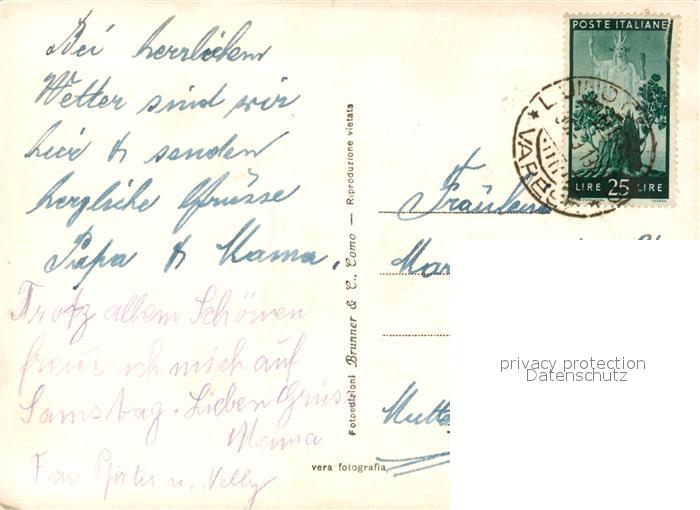 Bei herrlichem
Wetter sind wir
hier & senden
herzliche Grüsse
Papa & Mama.
Trotz allem Schönen
freue ich mich auf
Samstag. Lieben Grus
Mama
Frau Pfister u. Nelly
Fotoedizioni Brunner & C., Como — Riproduzione vietata
vera fotografia
POSTE ITALIANE
LIRE 25 LIRE
VARESE
Fräulein
Mar
Mutte
privacy protection
Datenschutz